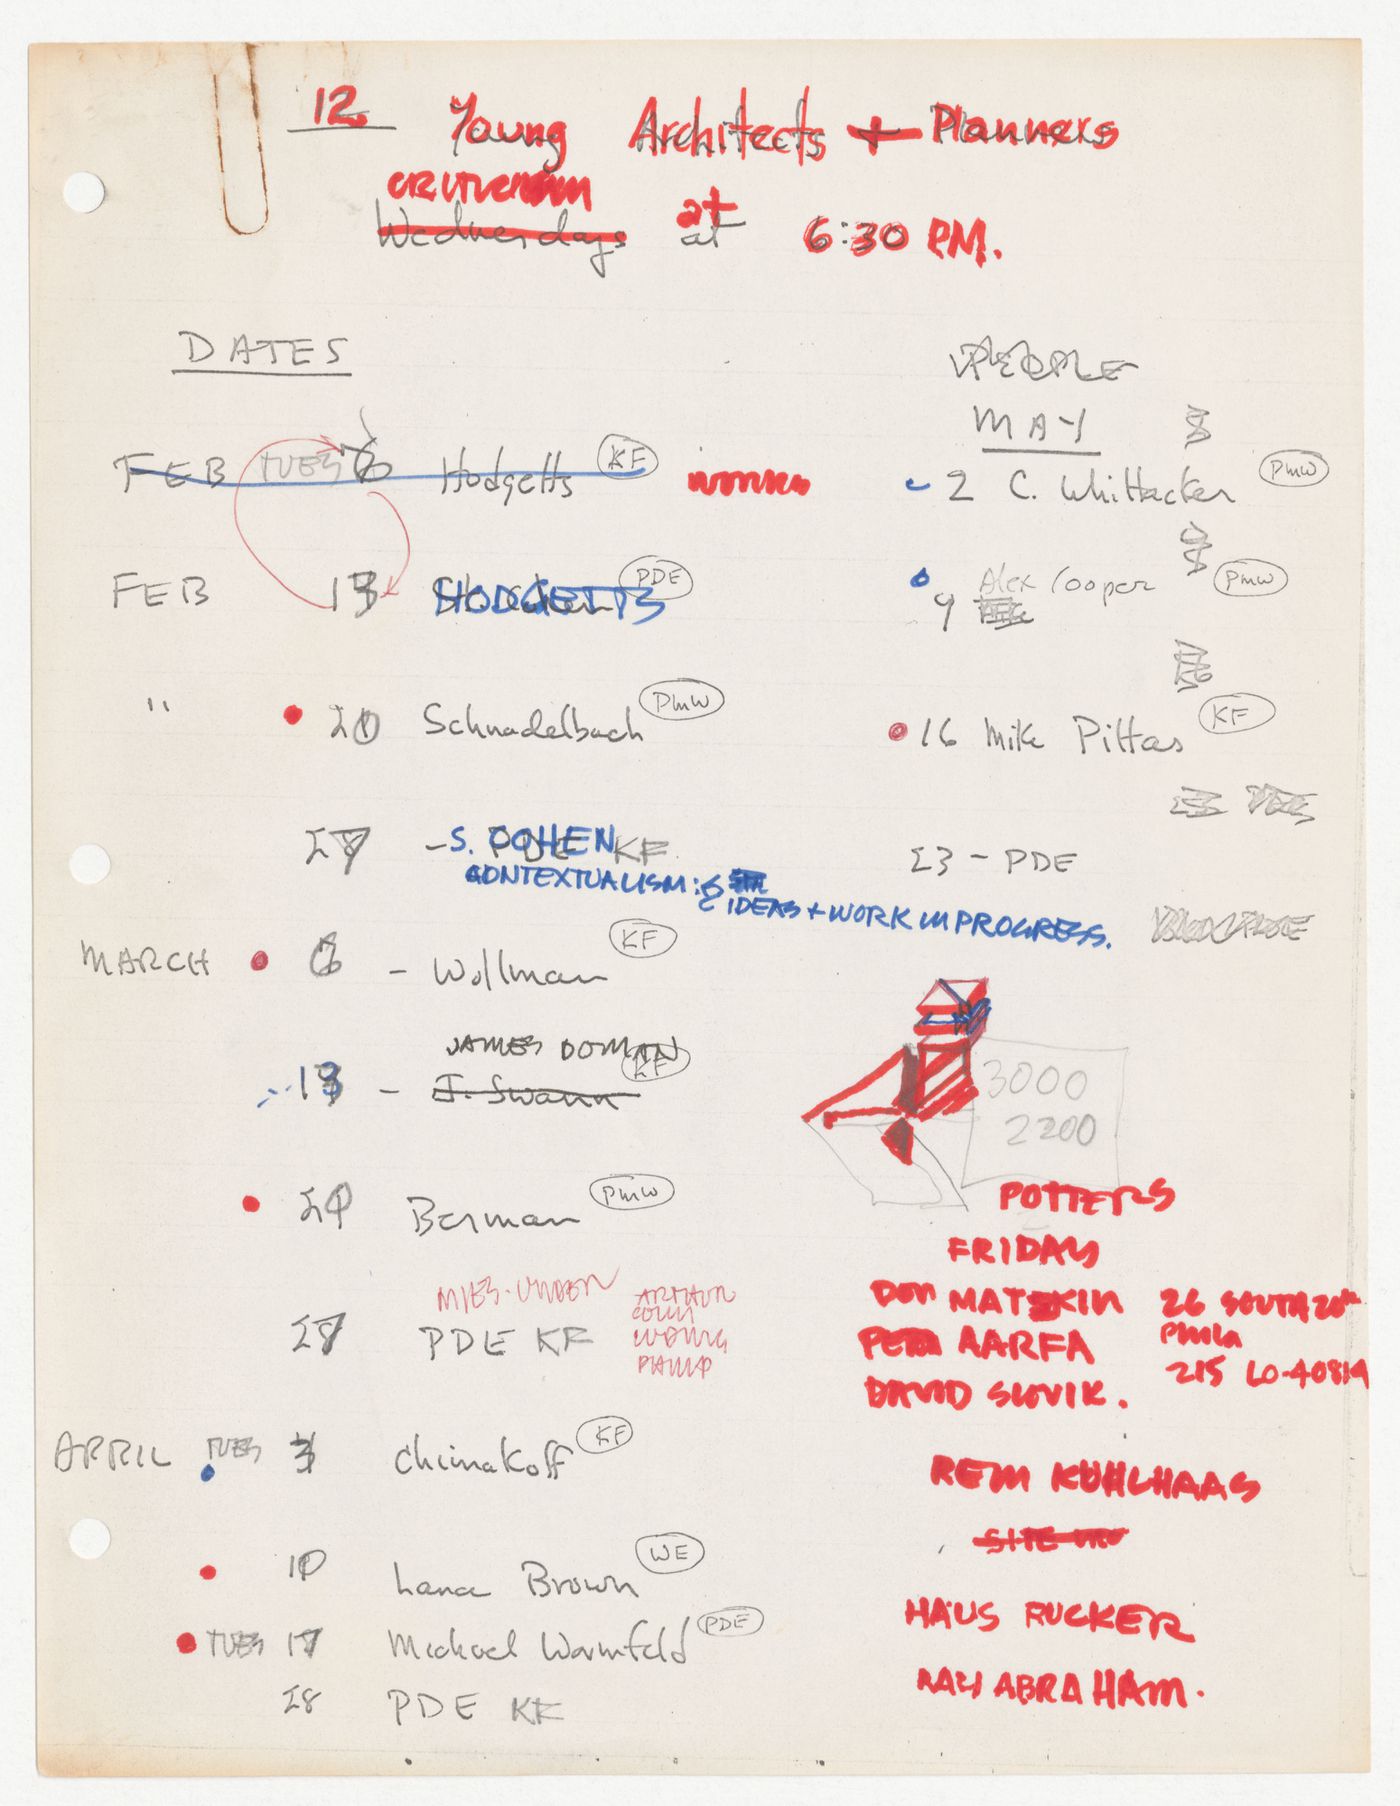 12 Young Architects + Planners
Wednesdays at at 6:30 PM.
DATES
FEB TUES 6 Hodgetts KF
FEB 13 HODGETTS PDE
" 20 Schnadelbach PMW
27 - S. COHEN PDE KF
CONTEXTUALISM:
IDEAS + WORK IN PROGRESS.
MARCH 6 - Wollman KF
JAMES DOMAN
13 - J. Swann KF
Berman PMW
MIES-UNDER
ARTHUR
PDE KF
APRIL TUES 3 Chimakoff KF
10 Lana Brown WE
TUES 17 Michael Warmfeld PDE
28 PDE KF
PEOPLE
MAY
2 C. Whittacker PMW
Alex Cooper PMW
9
16 Mike Pittas KF
23 - PDE
3000
2200
POTTERS
FRIDAY
DON MATZKIN 26 SOUTH 20th
PETER AARFA PHILA
DAVID SLOVIK. 215 LO-40814
REM KUHLHAAS
SITE
HAUS RUCKER
RAY ABRAHAM.